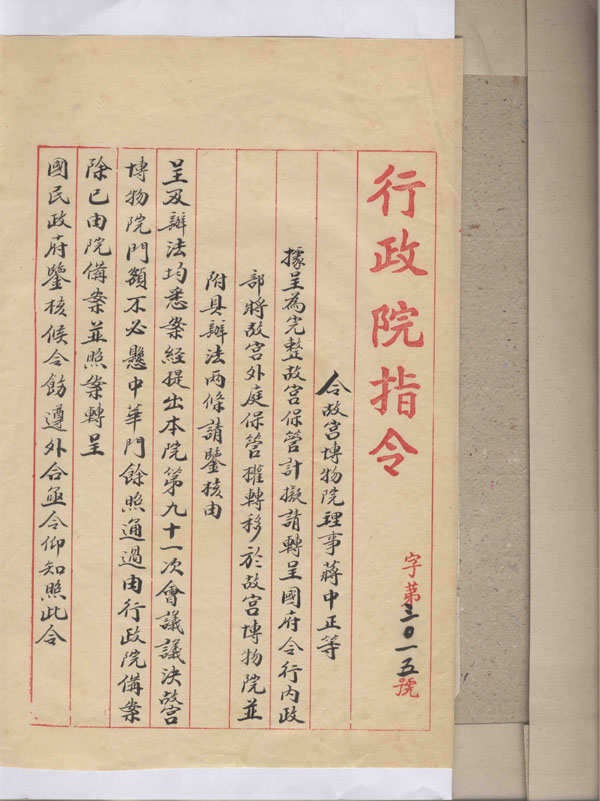 行政院指令
字第三〇一五號
令故宮博物院理事蔣中正等
據呈為完整故宮保管計擬請轉呈國府令行內政
部將故宮外庭保管權轉移於故宮博物院並
附具辦法兩條請鑒核由
呈及辦法均悉案經提出本院第九十一次會議議決故宮
博物院門額不必懸中華門餘照通過由行政院備案
除已由院備案並照案轉呈
國民政府鑒核候令飭遵外合亟令仰知照此令